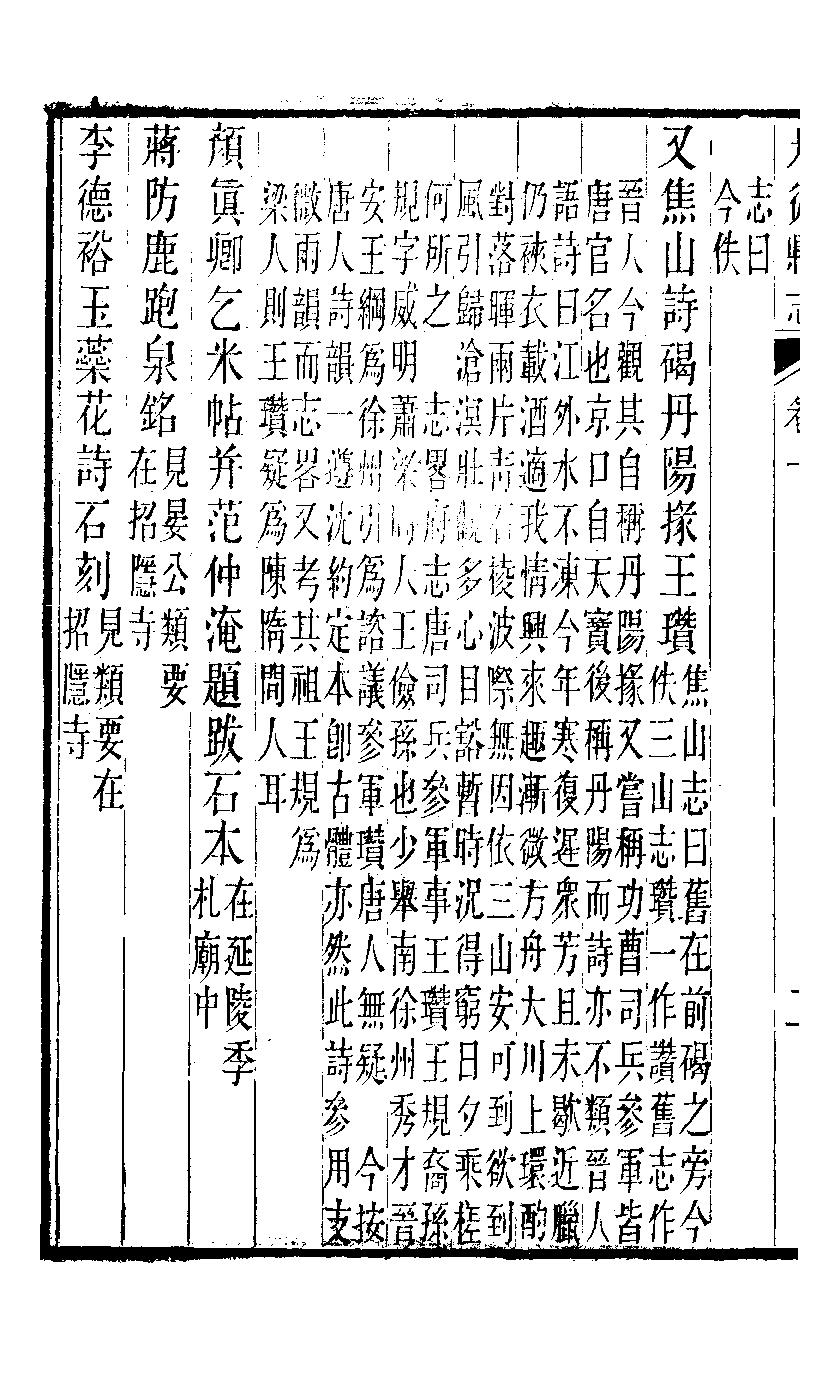 志曰
今佚
又焦山詩碣丹陽掾王瓚焦山志曰舊在前碣之旁今
佚三山志瓚一作讚舊志作
晉人今觀其自稱丹陽掾又嘗稱功曹司兵參軍皆
唐官名也京口自天寶後稱丹陽而詩亦不類晉人
語詩曰江外水不凍今年寒復遲衆芳且未歇近臘
仍裌衣載酒適我情興來趣漸微方舟大川上環酌
對落暉兩片靑石稜波際無因依三山安可到欲到
風引歸滄溟壯觀多心目豁暫時況得窮日夕乘槎
何所之　志畧府志唐司兵參軍事王瓚王規裔孫
規字威明蕭梁時人王儉孫也少舉南徐州秀才晉
安王綱爲徐州引爲諮議參軍瓚唐人無疑　今按
唐人詩韻一遵沈約定本卽古體亦然此詩參用支
微兩韻而志畧又考其祖王規爲
梁人則王瓚疑爲陳隋間人耳
顔眞卿乞米帖并范仲淹題跋石本在延陵季
札廟中
蔣防鹿跑泉銘見晏公類要
在招隱寺
李德裕玉蘂花詩石刻見類要在
招隱寺